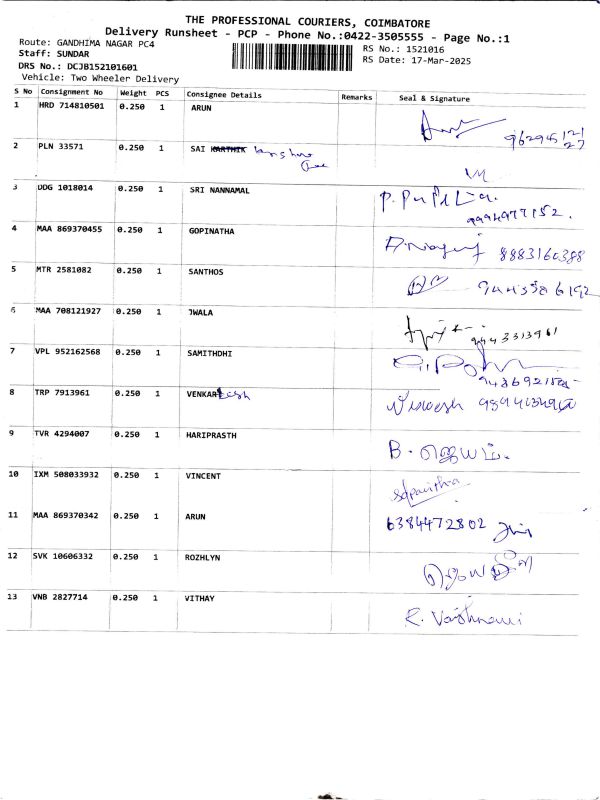 THE PROFESSIONAL COURIERS, COIMBATORE
Delivery Runsheet - PCP - Phone No.:0422-3505555 - Page No.:1
Route: GANDHIMA NAGAR PC4
Staff: SUNDAR
DRS No.: DCJB152101601
Vehicle: Two Wheeler Delivery
RS No.: 1521016
RS Date: 17-Mar-2025
S No Consignment No Weight PCS Consignee Details Remarks Seal & Signature
1 HRD 714810501 0.250 1 ARUN
2 PLN 33571 0.250 1 SAI KARTHIK
3 DDG 1018014 0.250 1 SRI NANNAMAL
9994977152.
4 MAA 869370455 0.250 1 GOPINATHA 8883160388
5 MTR 2581082 0.250 1 SANTHOS
6 MAA 708121927 0.250 1 JWALA 9443313961
7 VPL 952162568 0.250 1 SAMITHDHI
8 TRP 7913961 0.250 1 VENKATesh
9 TVR 4294007 0.250 1 HARIPRASTH B. ஜெயம்.
10 IXM 508033932 0.250 1 VINCENT
11 MAA 869370342 0.250 1 ARUN 6384472802
12 SVK 10606332 0.250 1 ROZHLYN
13 VNB 2827714 0.250 1 VITHAY R. Vaishnavi